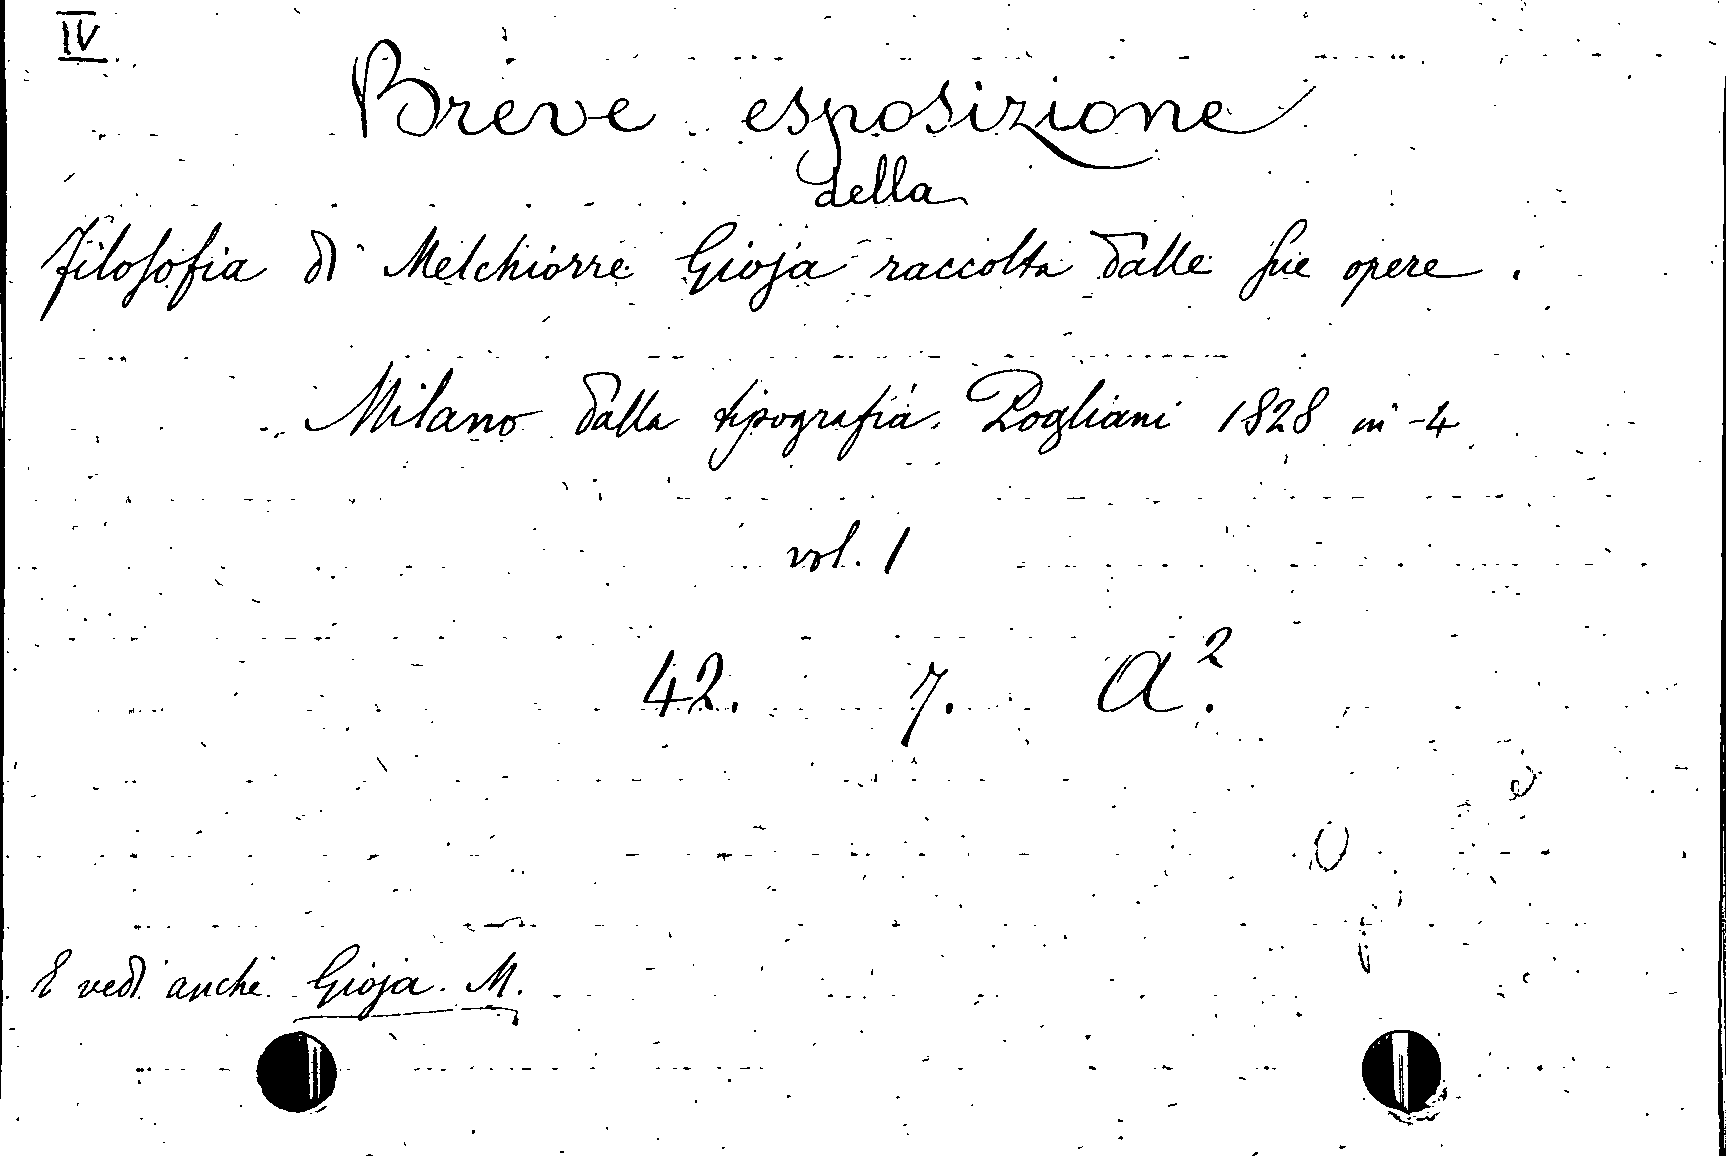 IV
Breve esposizione
della
filosofia di Melchiorre Gioja raccolta dalle sue opere.
Milano dalla tipografia Pogliani 1828 in-4
vol. 1
42. 7. a².
E vedi anche Gioja. M.